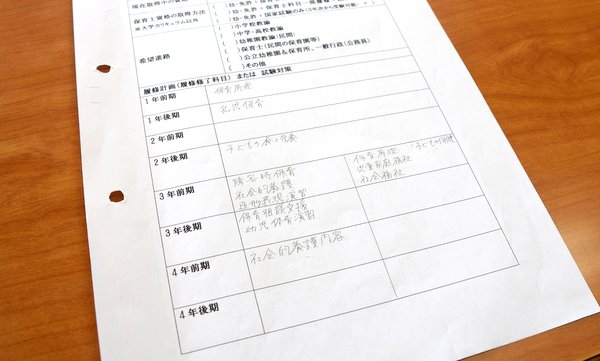 保育士資格の取得方法
※大学カリキュラム以外
( )幼・免許・国家試験のみ(3年次から受験可能)
希望進路
( )小学校教諭
( )中学・高校教諭
( )幼稚園教諭(民間)
( )保育士(民間の保育園等)
( )公立幼稚園&保育所、一般行政(公務員)
( )その他
履修計画(履修修了科目)または 試験対策
1年前期
保育原理
1年後期
乳児保育
2年前期
2年後期
子どもの食と栄養
3年前期
障害時保育
社会的養護
造形表現演習
保育原理
児童家庭福祉
社会福祉
3年後期
保育相談支援
幼児保育演習
4年前期
社会的養護内容
4年後期